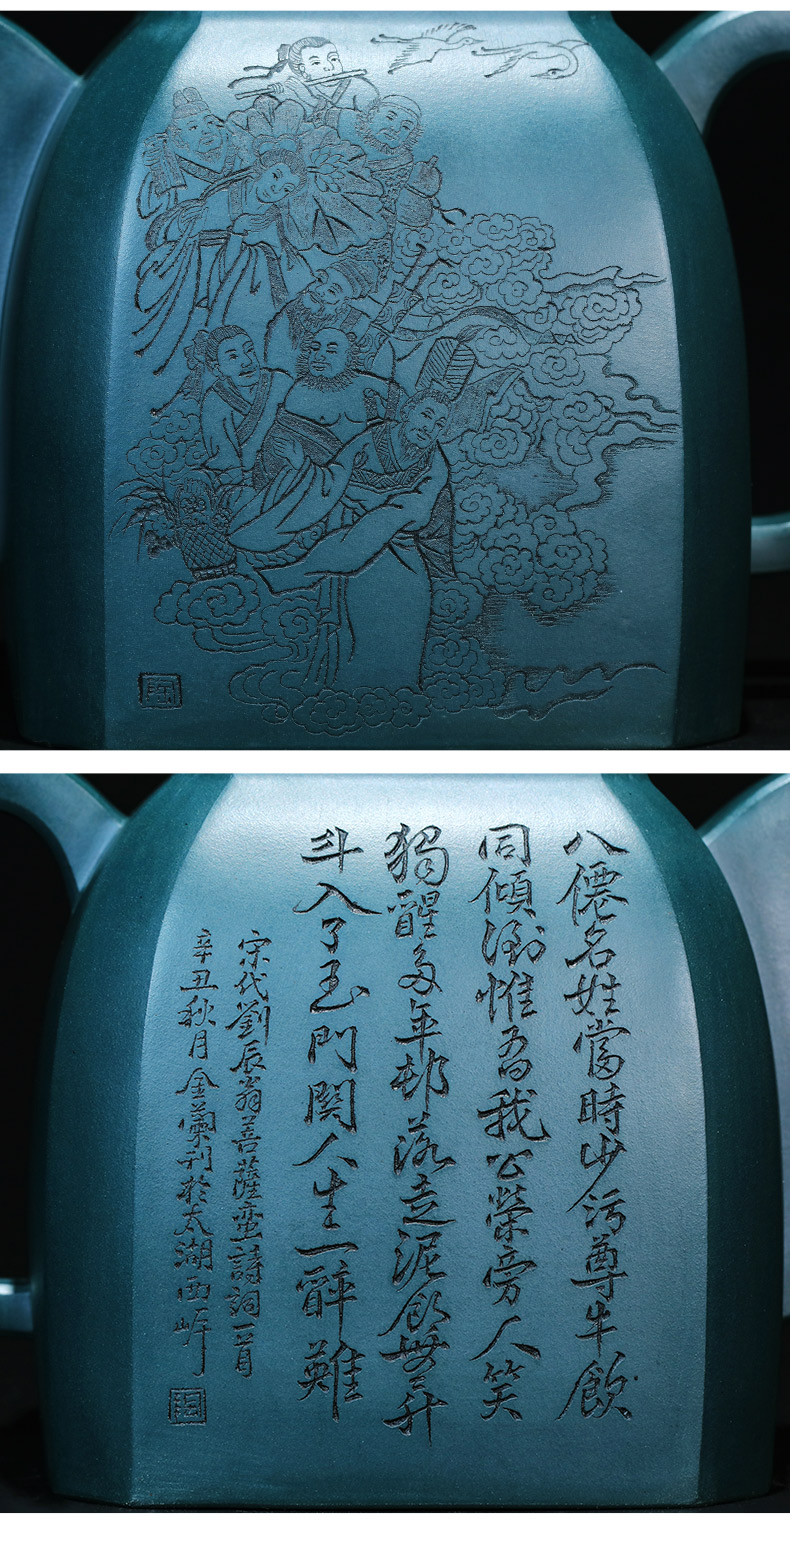 陶
八僊名姓當時少污尊牛飲
同傾倒惟吾我公榮旁人笑
獨醒多年邨落走泥飲無升
斗入了玉門関人生一醉難
宋代劉辰翁菩薩蛮詩詞一首
辛丑秋月金蘭刊於太湖西岸
陶